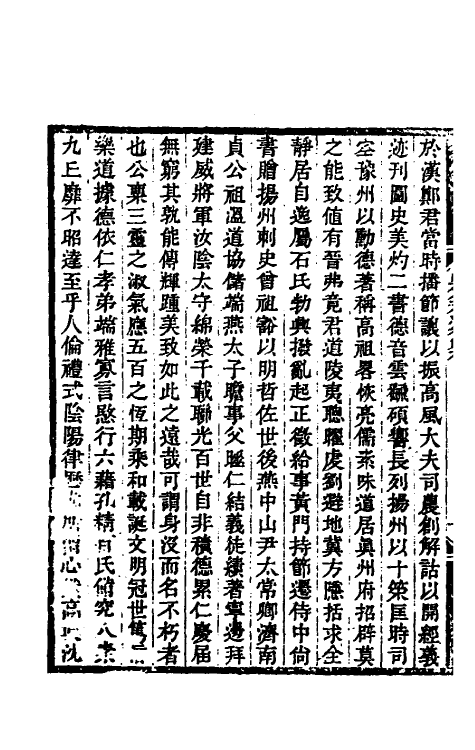 於漢鄭君當時播節讓以振高風大夫司農創解詁以開經義
迹刊圖史美灼二書德音雲飜碩響長列揚州以十策匡時司
空豫州以勳德著稱高祖畧恢亮儒素味道居真州府招辟莫
之能致值有晉弗竟君道陵夷聰曜虔劉避地冀方隱括求全
靜居自逸屬石氏勃興撥亂起正徵給事黃門持節遷侍中尙
書贈揚州刺史曾祖豁以明哲佐世後燕中山尹太常卿濟南
貞公祖溫道協儲端燕太子瞻事父曄仁結義徒績著寧邊拜
建威將軍汝陰太守綿榮千載聯光百世自非積德累仁慶屆
無窮其孰能傳輝踵美致如此之遠哉可謂身沒而名不朽者
也公稟三靈之淑氣應五百之恆期乘和載誕文明冠世篤
樂道據德依仁孝弟端雅寡言愍行六藉孔精百氏備究八素
九丘靡不昭達至乎人倫禮式陰陽律曆 心 高 沈